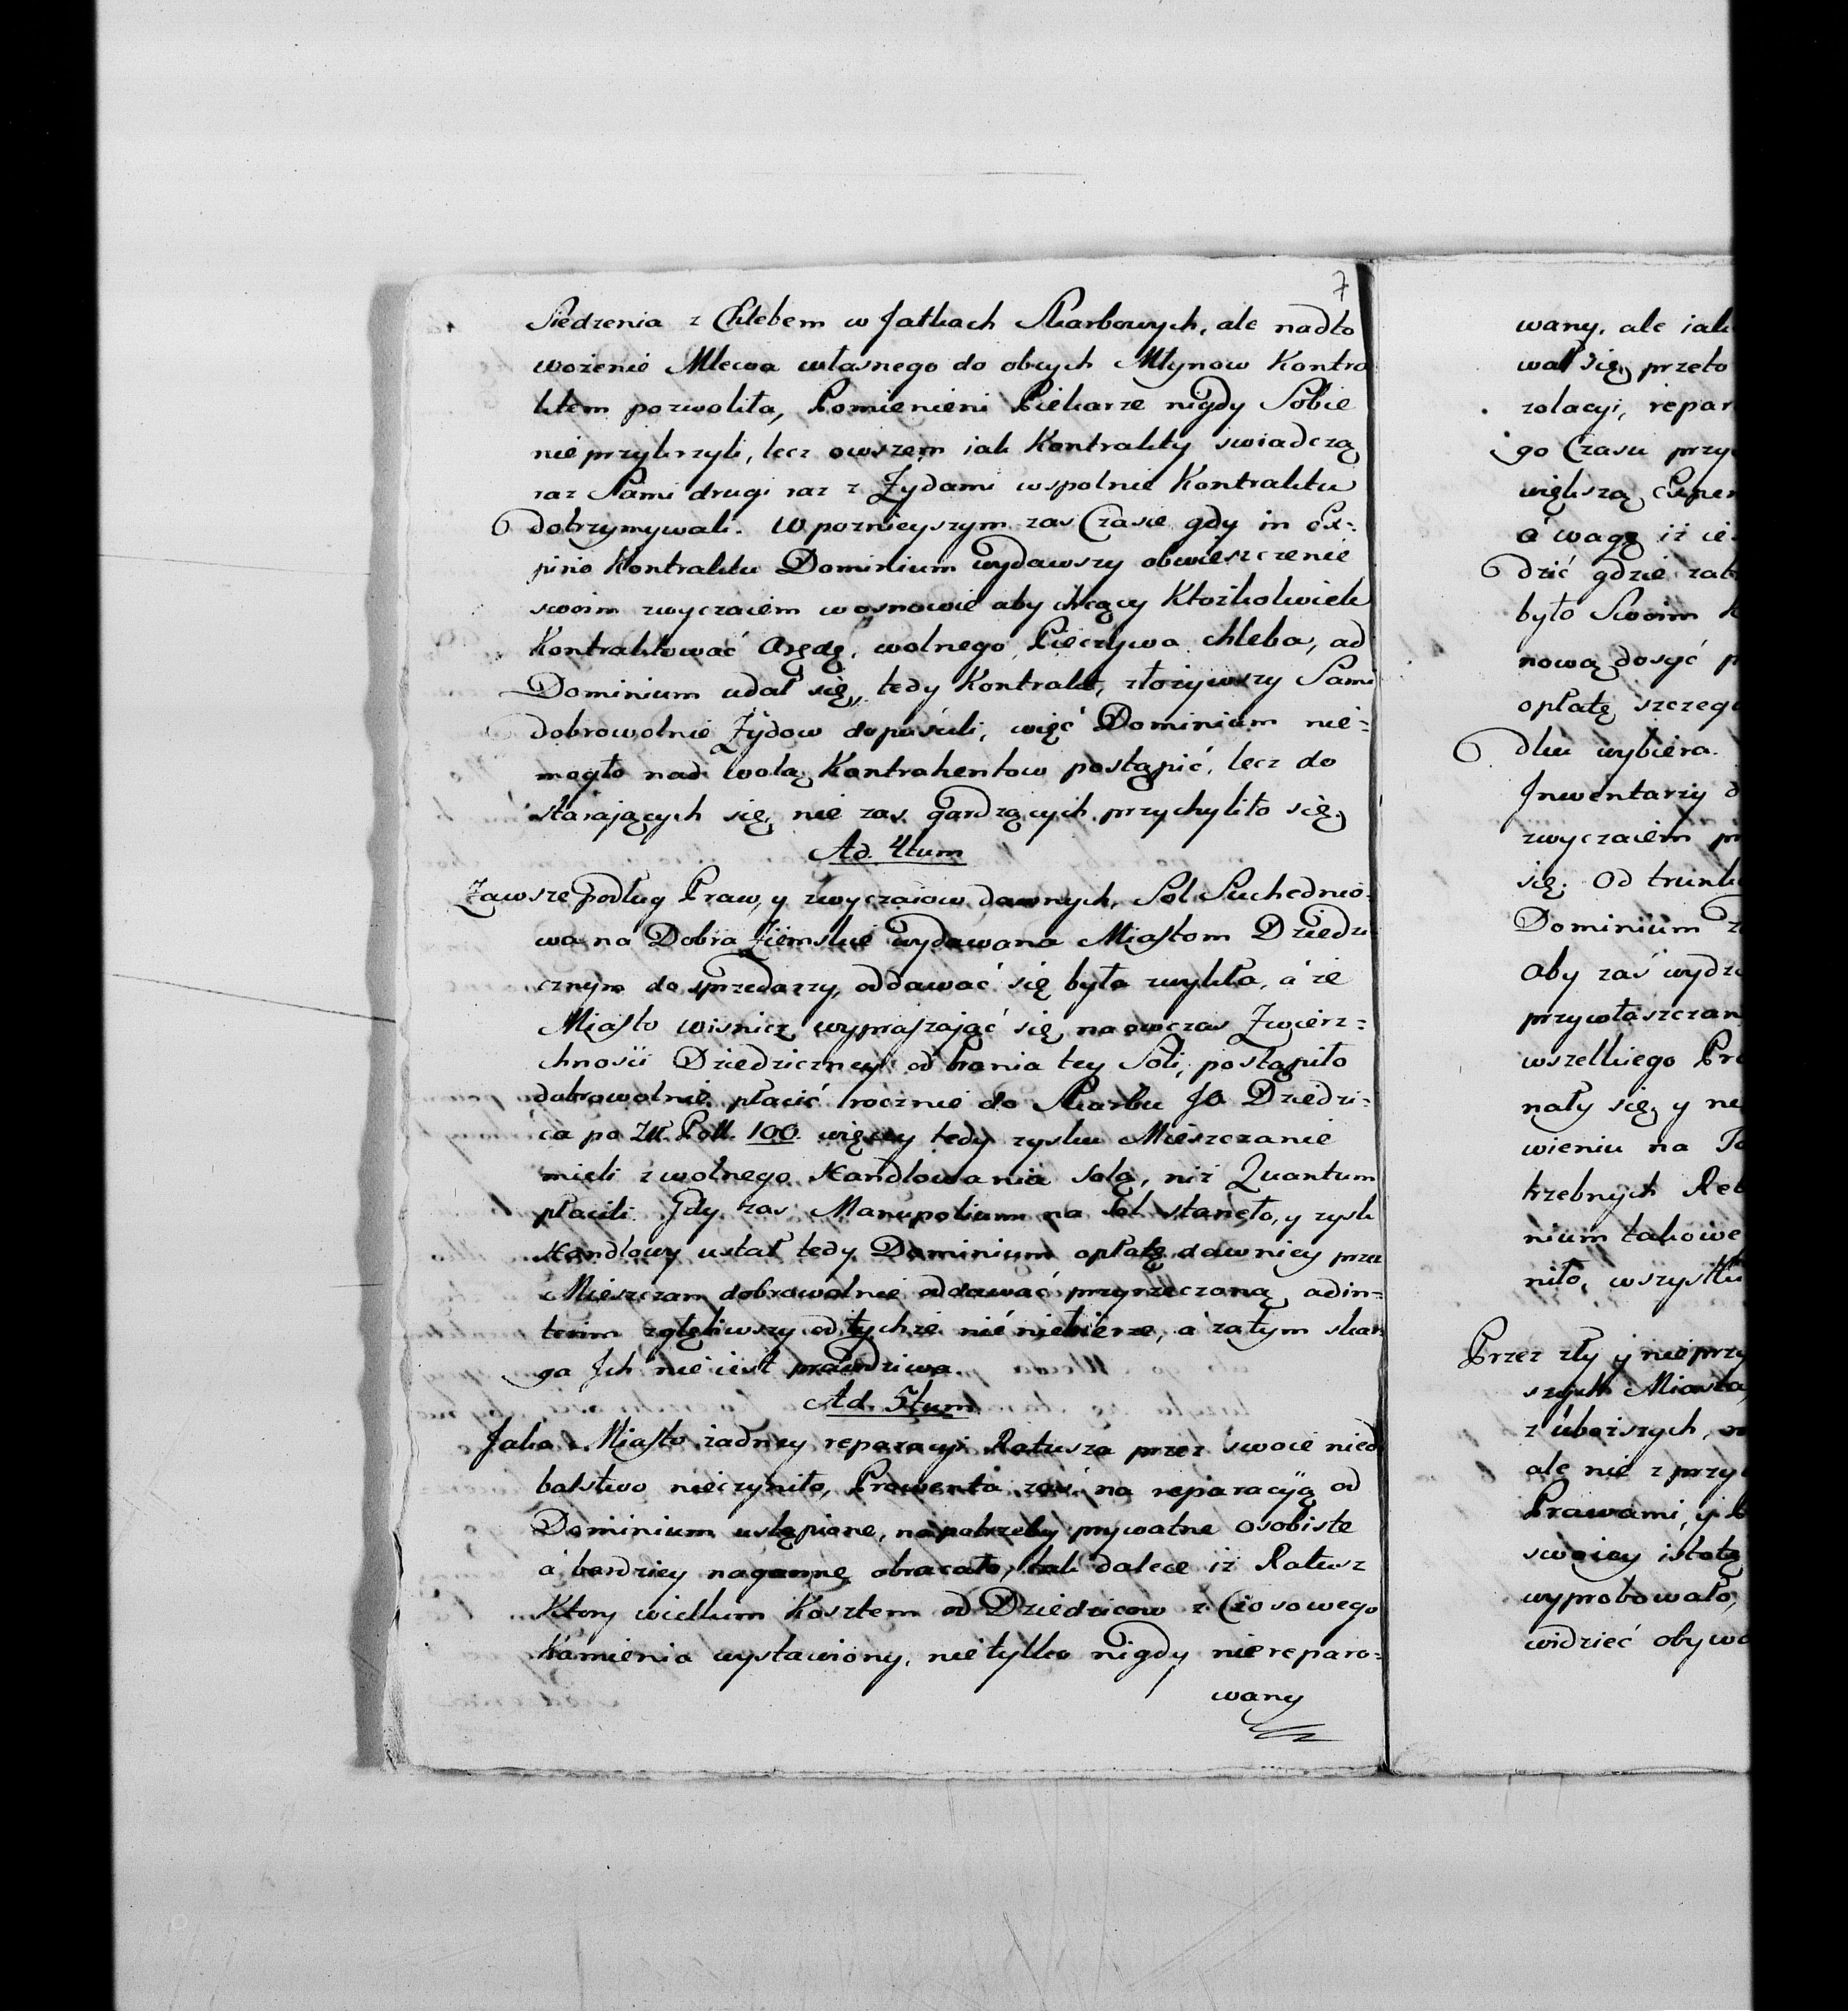 7
Siedzenia z Chlebem w Jatkach Skarbowych, ale nadto
wożenie Mlewa własnego do obcych Młynow Kontra
ktem pozwoliła, Pomienieni Piekarze nigdy Sobie
nie przykrzyli, lecz owszem iak Kontrakty swiadczą
raz Sami drugi raz z Żydami wspolnie Kontraktu
dotrzymywali. W poznieyszym zas Czasie gdy in Ex=
piro Kontraktu Dominium wydawszy obwieszczenie
swoim zwyczaiem w osnowie aby chcący Ktozkolwiek
Kontraktować Arędę, wolnego Pieczywa chleba, ad
Dominium udał się, tedy Kontrakt, złożywszy Sami
dobrowolnie Żydow dopuścili, więc Dominium nie=
mogło nad wolą Kontrahentow postąpić, lecz do
starających się, nie zas gardzących przychyliło się.
Ad. 4tum
Zawsze podług Praw, y zwyczaiow dawnych, Sol Suchednio-
wa na Dobra Ziemskie wydawana Miastom Dziedzi
cznym do sprzedarzy, oddawać się była zwykła, á że
Miasto wisnicz wypraszaiąć się naowczas Zwierz=
chnosii Dziedziczney od brania tey Soli, postąpiło
dobrowolnie płacić rocznie do Skarbu JO Dziedzi=
ca po Zł. Poll. 100. więcey tedy zysku Mieszczanie
mieli z wolnego Handlowania Solą, niż Quantum
płacili. Gdy zas Manupolium na Sol stanęło, y zysk
Handlowy ustał tedy Dominium opłatę dawniey przez
Mieszczan dobrowolnie oddawać przyrzeczoną, adin=
terim od tychze nić niebierze, á zatym skar
ga Jch nie iest prawdziwa.
Ad. 5tum
Jako Miasto żadney reparacyi Ratusza przez swoie nied
balstwo nieczyniło, Prowenta zaś na reparacyą od
Dominium ustąpione, na potrzeby prywatne osobiste
á bardziey naganne obracało, tak dalece iż Ratusz
Ktory wielkim Kosztem od Dziedzicow z Ciosowego
Kamienia wystawiony, nie tylko nigdy nie reparo=
wany
wany, ale iak
wał się, przeto
zolacyi, repar
go Czasu przy
większą Expen
á wagę iż ie
dzić gdzie
było Swoim K
nową dosyć p
opłatę szczegu
dku wybiera.
Jnwentarzy d
zwyczaiem pr
się. Od trunk
Dominium
Aby zaś wydz
przywłaszczan
wszelkiego Pr
nały się, y ne
wieniu na
trzebnych Re
nium takowe
niło, wszystk
Przez zły y nieprzy
szych Miasta
z uboższych,
ale nie z przy
Prawami, y
swoiey istotę
wyprobowało,
widzieć obywa